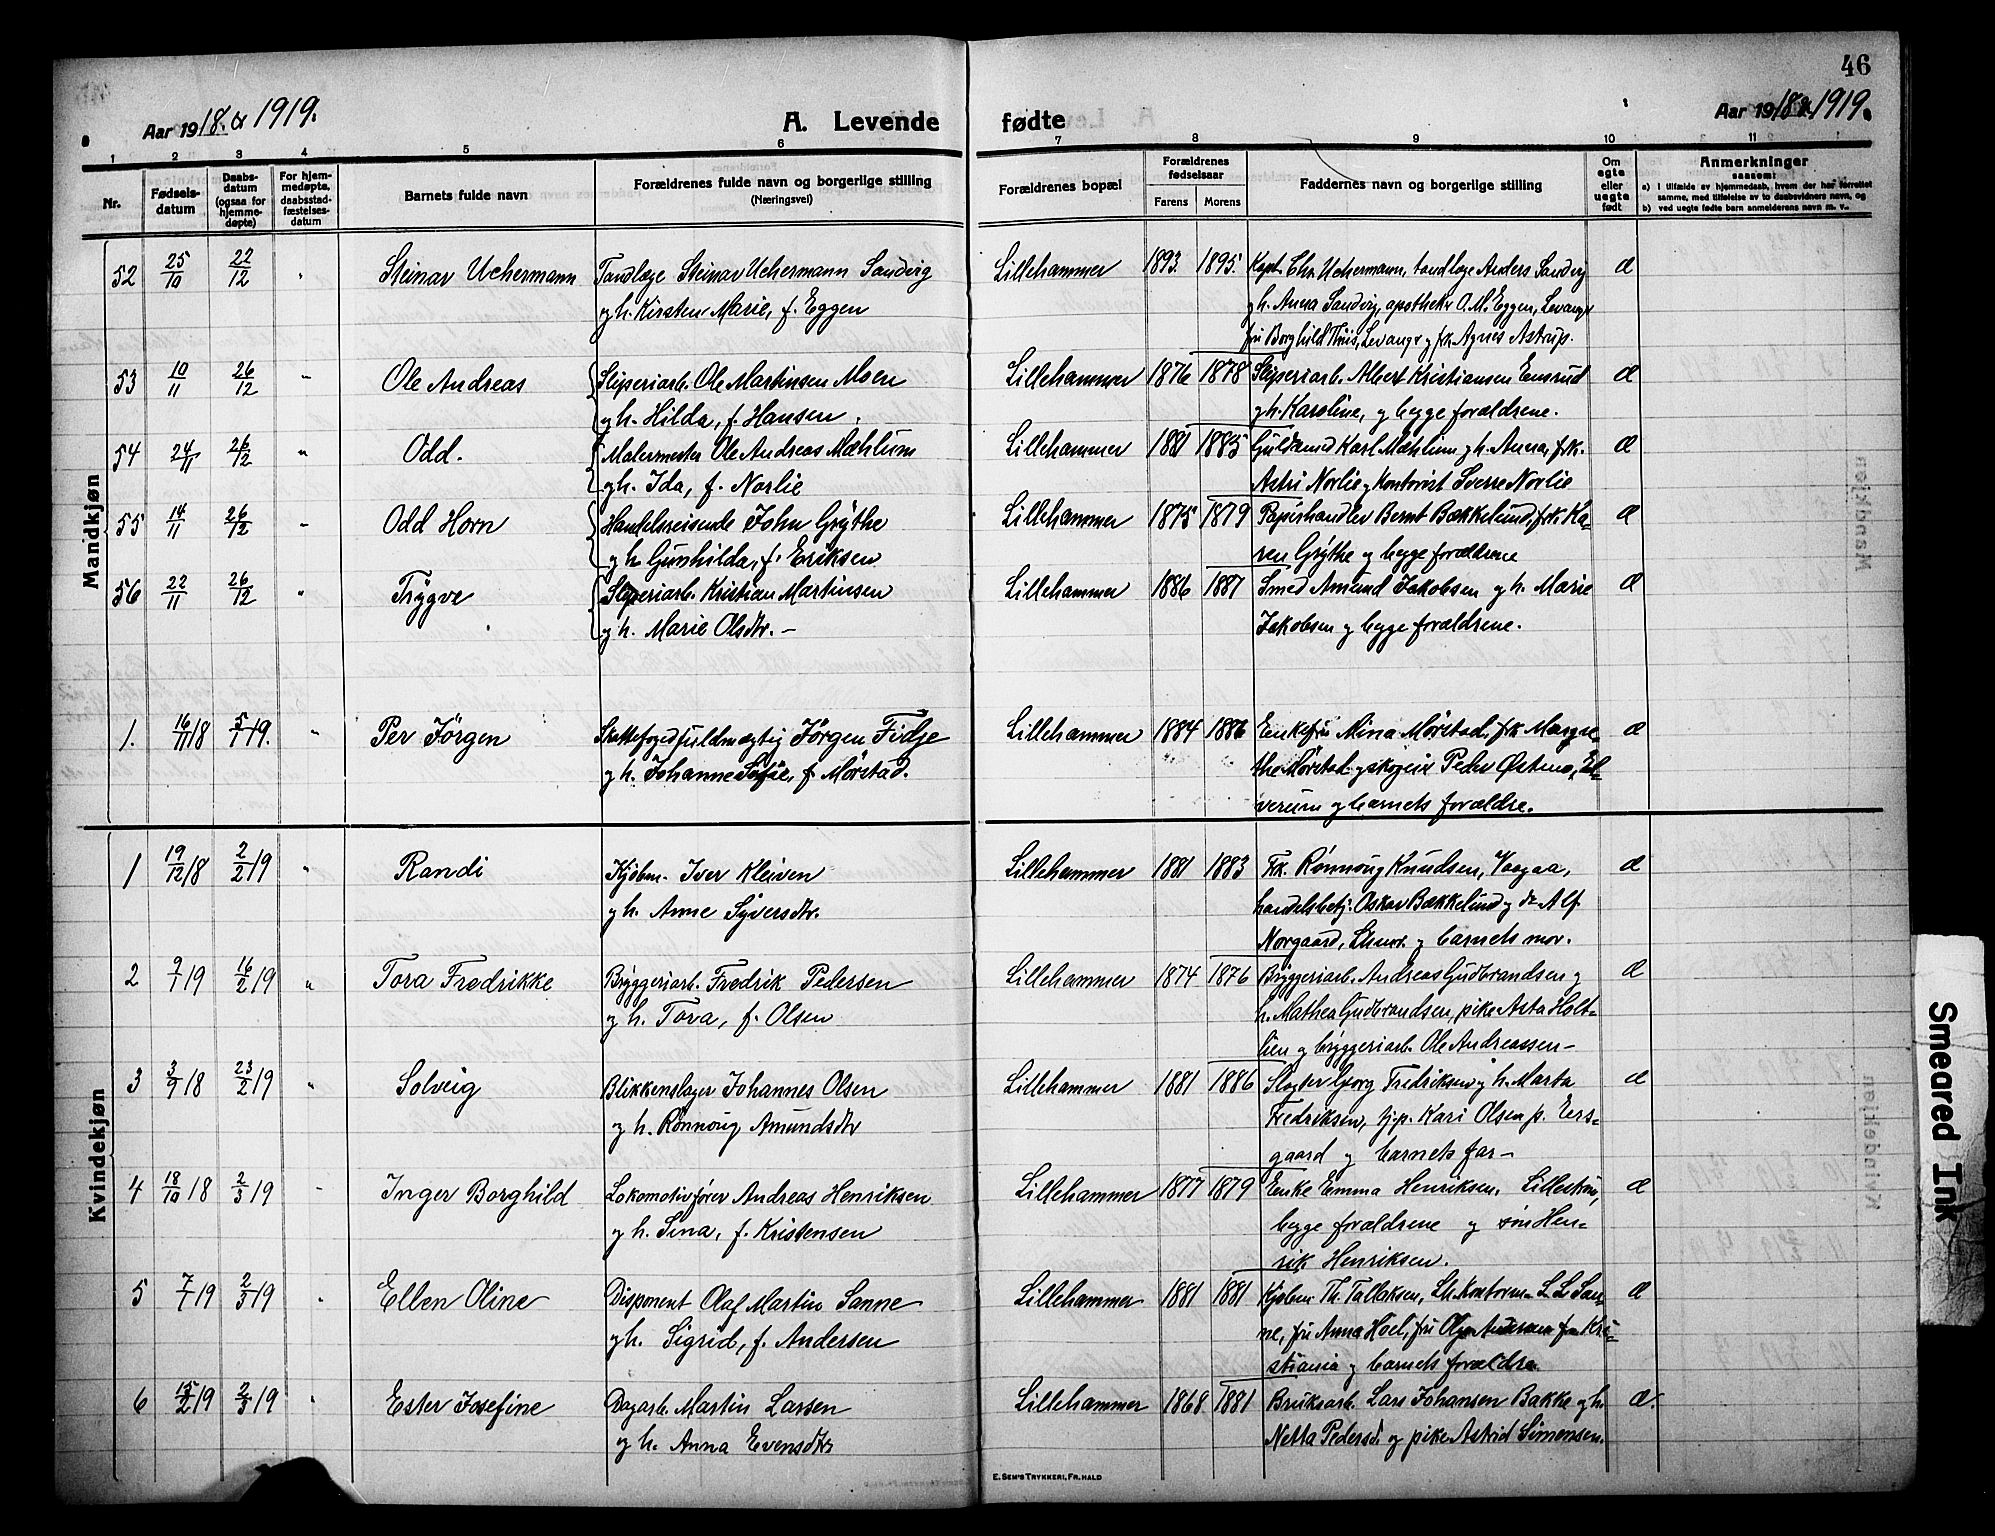 46
Aar 1918. & 1919.
A. Levende
fødte
Aar 1918 & 1919.
1 2 3 4 5 6 7 8 9 10 11
Nr.
Fødselsdatum
Daabsdatum (ogsaa for hjemmedøpte)
For hjemmedøpte, daabsstadfæstelsesdatum
Barnets fulde navn
Forældrenes fulde navn og borgerlige stilling
(Næringsvei)
Forældrenes bopæl
Forældrenes fødselsaar
Farens Morens
Faddernes navn og borgerlige stilling
Om egte eller uegte født
Anmerkninger
saasom:
a) i tilfælde av hjemmedaab, hvem der har forrettet
samme, med tilføielse av to daabsvidners navn, og
b) ved uegte fødte barn anmelderens navn m. v.
Mandkjøn
52 25/10 22/12 " Steinar Uchermann Tandlæge Steinar Uchermann Sandvig Lillehammer 1893. 1895. Kapt. Chr. Uchermann, tandlæge Anders Sandvig æ
og h. Kirsten Marie, f. Eggen og h. Anna Sandvig, apotheker O. M. Eggen, Levanger
fru Borghild Thiis, Levanger og frk. Agnes Astrup.
53 10/11 26/12 " Ole Andreas Sliperiarb. Ole Martinsen Moen Lillehammer 1876 1878 Sliperiarb. Albert Kristiansen Ensrud æ
og h. Hilda, f. Hansen. og h. Karoline, og begge forældrene.
54 24/11 26/12 " Odd. Malermester Ole Andreas Mæhlum Lillehammer 1881 1885 Guldsmed Karl Mæhlum og h. Anna, frk. æ
og h. Ida, f. Norlie Astri Norlie og kontorist Sverre Norlie
55 14/11 26/12 " Odd Horn Handelsreisende John Grythe Lillehammer 1875 1879 Papirhandler Bernt Bækkelund, frk. Ka- æ
og h. Gunhilda, f. Eriksen ren Grythe og begge forældrene
56 22/11 26/12 " Trygve Sliperiarb. Kristian Martinsen Lillehammer 1886 1887 Smed Amund Jakobsen og h. Marie æ
og h. Marie Olsdtr. – Jakobsen og begge forældrene.
1. 16/11 18 5/1 19. " Per Jørgen Skattefogedfuldmægtig Jørgen Fidje Lillehammer 1884 1886 Enkefru Mina Mørstad, frk. Margre- æ
og h. Johanne Sofie, f. Mørstad. the Mørstad og skogeier Peder Østmo, El-
verum og barnets forældre.
Kvindekjøn
1 19/12 18 2/2 19 " Randi Kjøbm. Iver Kleiven Lillehammer 1881 1883 Frk. Rønnoug Knudsen, Vaagaa, æ
og h. Anne Syversdtr. handelsbetj. Oskar Bækkelund og do Alf
Norgaard, Lhmr. og barnets mor.
2 9/1 19 16/2 19 " Tora Fredrikke Bryggeriarb. Fredrik Pedersen Lillehammer 1874 1876 Bryggeriarb. Andreas Gudbrandsen og æ
og h. Tora, f. Olsen h. Mathea Gudbrandsen, pike Asta Holt-
lien og bryggeriarb. Ole Andreassen –
3 3/9 18 23/2 19 " Solveig Blikkenslager Johannes Olsen Lillehammer 1881 1886 Slagter Georg Fredriksen og h. Marta æ
og h. Rønnoug Amundsdtr Fredriksen, tj.p. Kari Olsen p. Eers-
gaard og barnets far –
4 18/10 18 2/3 19 " Inger Borghild Lokomotivfører Andreas Henriksen Lillehammer 1877 1879 Enke Emma Henriksen, Lillestrøm, æ
og h. Sina, f. Kristensen begge forældrene og søn Hen-
rik Henriksen.
5 7/1 19 2/3 19 " Ellen Oline Disponent Olaf Martin Sanne Lillehammer 1881 1881 Kjøbm. Th. Tallaksen, Lh. Kontorm. L. L. San- æ
og h. Sigrid, f. Andersen ne, fru Anna Hoel, fru Olga Andersen fra Kri-
stiania og barnets forældre.
6 15/2 19 2/3 19 " Ester Josefine Dagarb. Martin Larsen Lillehammer 1868 1881 Bruksarb. Lars Johansen Bakke og h. æ.
og h. Anna Evensdtr Netta Pedersd. og pike Astrid Simensen.
E. SEM'S TRYKKERI, FR.HALD
Smeared Ink